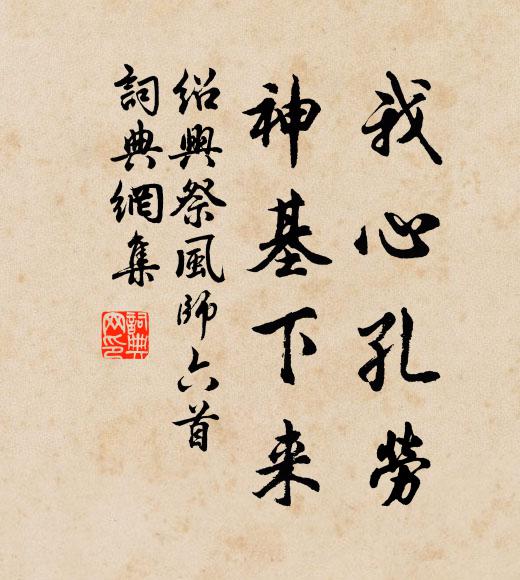 我心孔勞
神基下来
紹興祭風師六首
詞典網集
詞典
网印